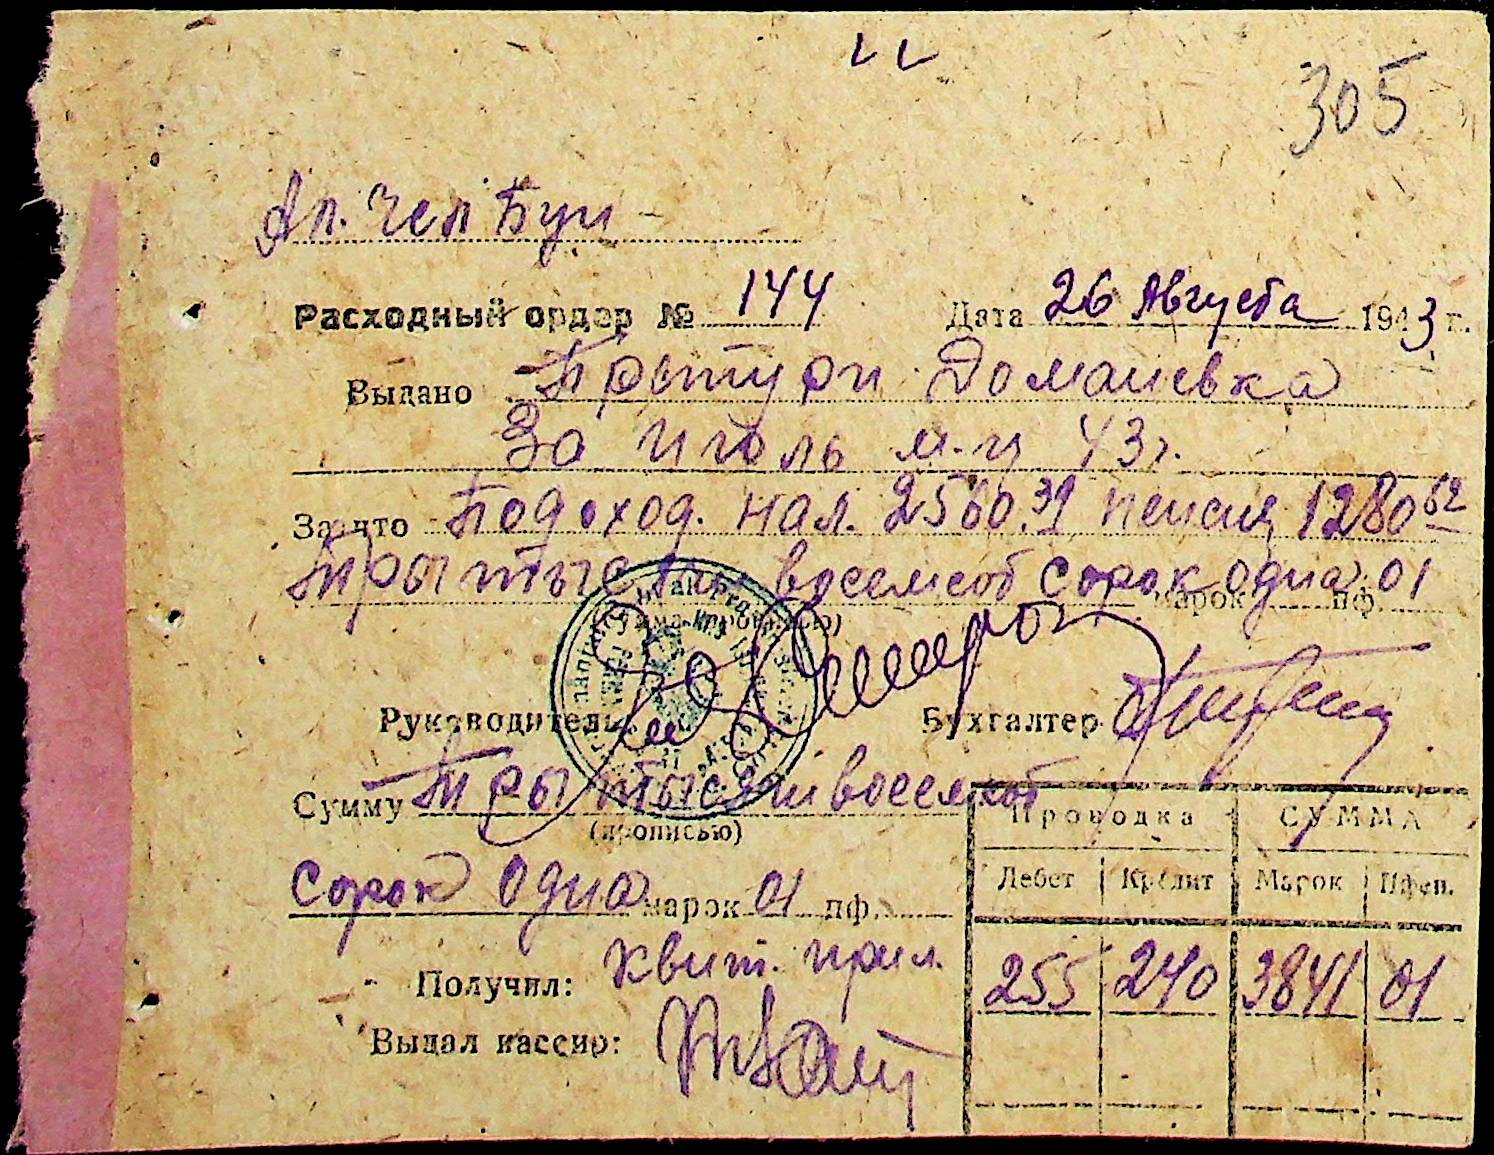 305
Ап. Чел Бун
Расходный ордер № 144 Дата 26 Августа 1943 г.
Выдано Претури Доманевка
За июль м-ц 43 г.
За что Подоход. нал. 2560.39 пенсия 1280 62
Три тысячи восемсот сорок одна марок 01 пф.
(сумма прописью)
Руководитель Бухгалтер
Сумму Три тысячи восемсот
(прописью)
сорок одна марок 01 пф.
Проводка СУММА
Дебет Кредит Марок Пфен.
255 240 3841 01
Получил: Квит. прил.
Выдал кассир: